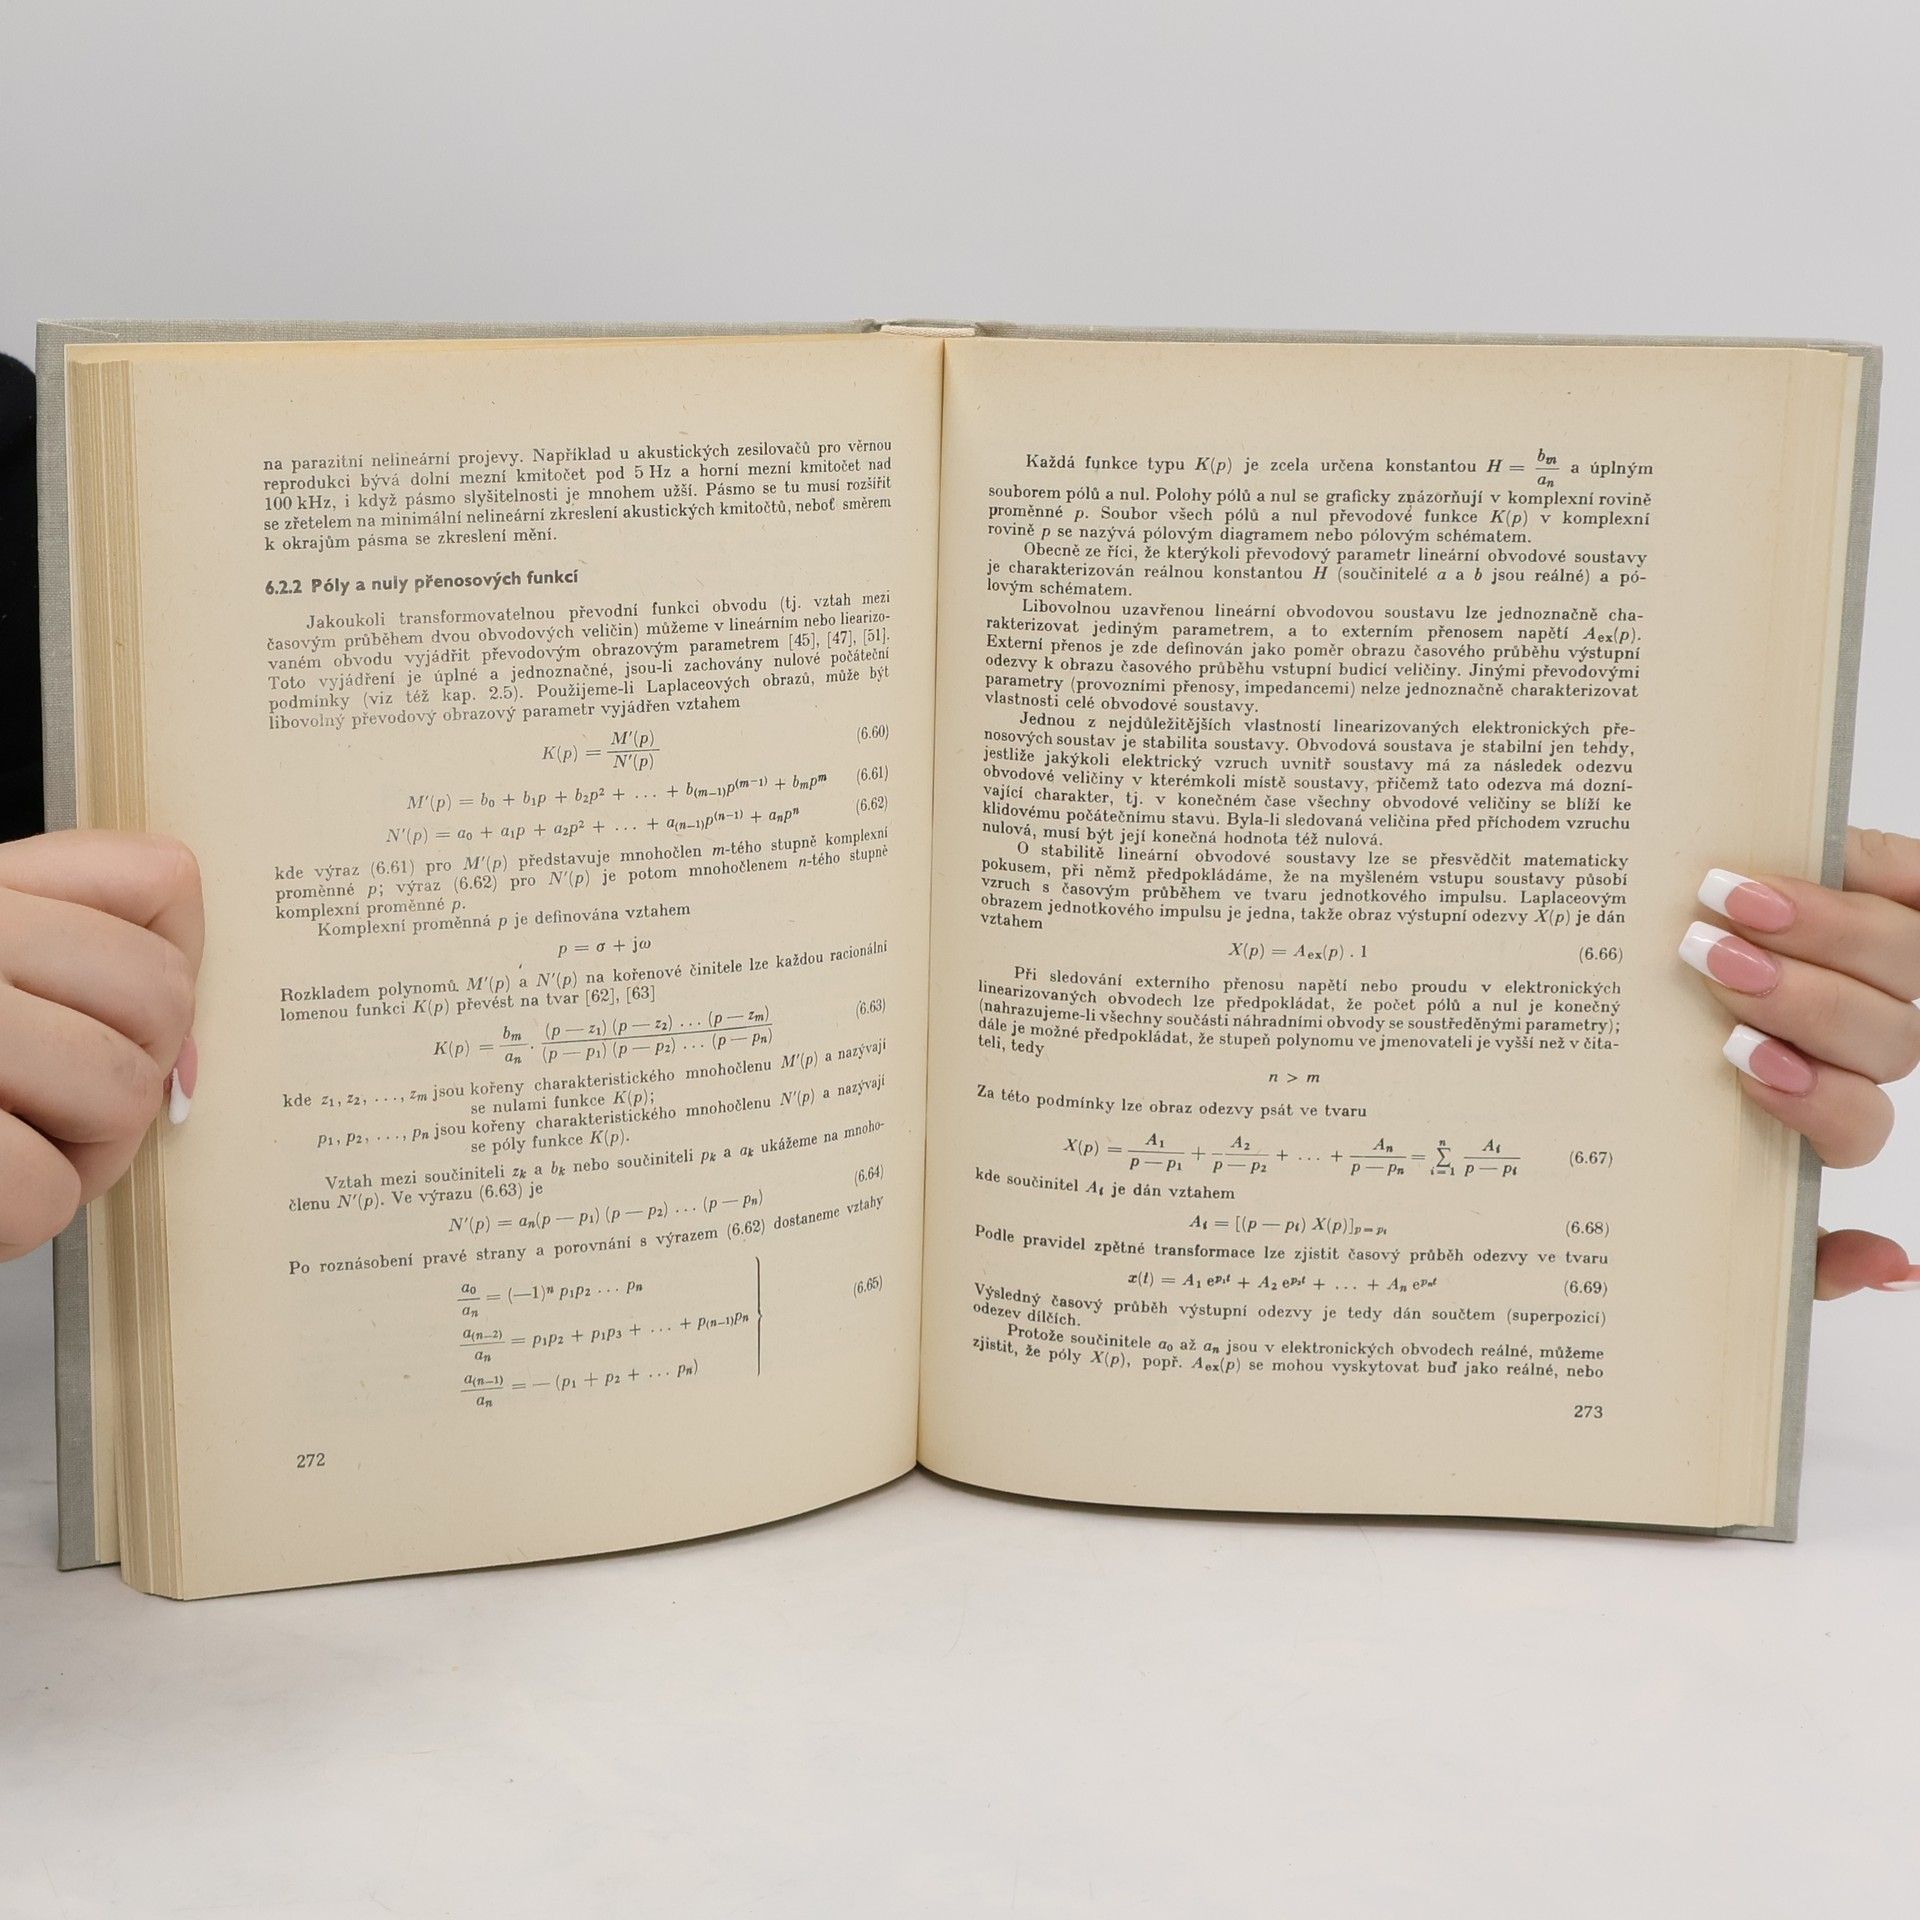 na parazitní nelineární projevy. Například u akustických zesilovačů pro věrnou
reprodukci bývá dolní mezní kmitočet pod 5 Hz a horní mezní kmitočet nad
100 kHz, i když pásmo slyšitelnosti je mnohem užší. Pásmo se tu musí rozšířit
se zřetelem na minimální nelineární zkreslení akustických kmitočtů, neboť směrem
k okrajům pásma se zkreslení mění.
6.2.2 Póly a nuly přenosových funkcí
Jakoukoli transformovatelnou převodní funkci obvodu (tj. vztah mezi
časovým průběhem dvou obvodových veličin) můžeme v lineárním nebo liearizo-
vaném obvodu vyjádřit převodovým obrazovým parametrem [45], [47], [51].
Toto vyjádření je úplné a jednoznačné, jsou-li zachovány nulové počáteční
podmínky (viz též kap. 2.5). Použijeme-li Laplaceových obrazů, může být
libovolný převodový obrazový parametr vyjádřen vztahem
K(p) = M′(p) / N′(p) (6.60)
M′(p) = b₀ + b₁p + b₂p² + ... + b₍ₘ₋₁₎p⁽ᵐ⁻¹⁾ + bₘpᵐ (6.61)
N′(p) = a₀ + a₁p + a₂p² + ... + a₍ₙ₋₁₎p⁽ⁿ⁻¹⁾ + aₙpⁿ (6.62)
kde výraz (6.61) pro M′(p) představuje mnohočlen m-tého stupně komplexní
proměnné p; výraz (6.62) pro N′(p) je potom mnohočlenem n-tého stupně
komplexní proměnné p.
Komplexní proměnná p je definována vztahem
p = σ + jω
Rozkladem polynomů M′(p) a N′(p) na kořenové činitele lze každou racionální
lomenou funkci K(p) převést na tvar [62], [63]
K(p) = bₘ / aₙ · (p — z₁) (p — z₂) ... (p — zₘ) / (p — p₁) (p — p₂) ... (p — pₙ) (6.63)
kde z₁, z₂, ..., zₘ jsou kořeny charakteristického mnohočlenu M′(p) a nazývají
se nulami funkce K(p);
p₁, p₂, ..., pₙ jsou kořeny charakteristického mnohočlenu N′(p) a nazývají
se póly funkce K(p).
Vztah mezi součiniteli zₖ a bₖ nebo součiniteli pₖ a aₖ ukážeme na mnoho-
členu N′(p). Ve výrazu (6.63) je
N′(p) = aₙ(p — p₁) (p — p₂) ... (p — pₙ) (6.64)
Po roznásobení pravé strany a porovnání s výrazem (6.62) dostaneme vztahy
a₀ / aₙ = (—1)ⁿ p₁p₂ ... pₙ
a₍ₙ₋₂₎ / aₙ = p₁p₂ + p₁p₃ + ... + p₍ₙ₋₁₎pₙ (6.65)
a₍ₙ₋₁₎ / aₙ = — (p₁ + p₂ + ... pₙ)
272
Každá funkce typu K(p) je zcela určena konstantou H = bₘ / aₙ a úplným
souborem pólů a nul. Polohy pólů a nul se graficky znázorňují v komplexní rovině
proměnné p. Soubor všech pólů a nul převodové funkce K(p) v komplexní
rovině p se nazývá pólovým diagramem nebo pólovým schématem.
Obecně ze říci, že kterýkoli převodový parametr lineární obvodové soustavy
je charakterizován reálnou konstantou H (součinitelé a a b jsou reálné) a pó-
lovým schématem.
Libovolnou uzavřenou lineární obvodovou soustavu lze jednoznačně cha-
rakterizovat jediným parametrem, a to externím přenosem napětí Aₑₓ(p).
Externí přenos je zde definován jako poměr obrazu časového průběhu výstupní
odezvy k obrazu časového průběhu vstupní budicí veličiny. Jinými převodovými
parametry (provozními přenosy, impedancemi) nelze jednoznačně charakterizovat
vlastnosti celé obvodové soustavy.
Jednou z nejdůležitějších vlastností linearizovaných elektronických pře-
nosových soustav je stabilita soustavy. Obvodová soustava je stabilní jen tehdy,
jestliže jakýkoli elektrický vzruch uvnitř soustavy má za následek odezvu
obvodové veličiny v kterémkoli místě soustavy, přičemž tato odezva má dozní-
vající charakter, tj. v konečném čase všechny obvodové veličiny se blíží ke
klidovému počátečnímu stavu. Byla-li sledovaná veličina před příchodem vzruchu
nulová, musí být její konečná hodnota též nulová.
O stabilitě lineární obvodové soustavy lze se přesvědčit matematicky
pokusem, při němž předpokládáme, že na myšleném vstupu soustavy působí
vzruch s časovým průběhem ve tvaru jednotkového impulsu. Laplaceovým
obrazem jednotkového impulsu je jedna, takže obraz výstupní odezvy X(p) je dán
vztahem
X(p) = Aₑₓ(p) . 1 (6.66)
Při sledování externího přenosu napětí nebo proudu v elektronických
linearizovaných obvodech lze předpokládat, že počet pólů a nul je konečný
(nahrazujeme-li všechny součásti náhradními obvody se soustředěnými parametry);
dále je možné předpokládat, že stupeň polynomu ve jmenovateli je vyšší než v čita-
teli, tedy
n > m
Za této podmínky lze obraz odezvy psát ve tvaru
X(p) = A₁ / (p — p₁) + A₂ / (p — p₂) + ... + Aₙ / (p — pₙ) = Σⁿᵢ₌₁ Aᵢ / (p — pᵢ) (6.67)
kde součinitel Aᵢ je dán vztahem
Aᵢ = [(p — pᵢ) X(p)]p=pᵢ (6.68)
Podle pravidel zpětné transformace lze zjistit časový průběh odezvy ve tvaru
x(t) = A₁ e^p₁t + A₂ e^p₂t + ... + Aₙ e^pₙt (6.69)
Výsledný časový průběh výstupní odezvy je tedy dán součtem (superpozicí)
odezev dílčích.
Protože součinitele a₀ až aₙ jsou v elektronických obvodech reálné, můžeme
zjistit, že póly X(p), popř. Aₑₓ(p) se mohou vyskytovat buď jako reálné, nebo
273